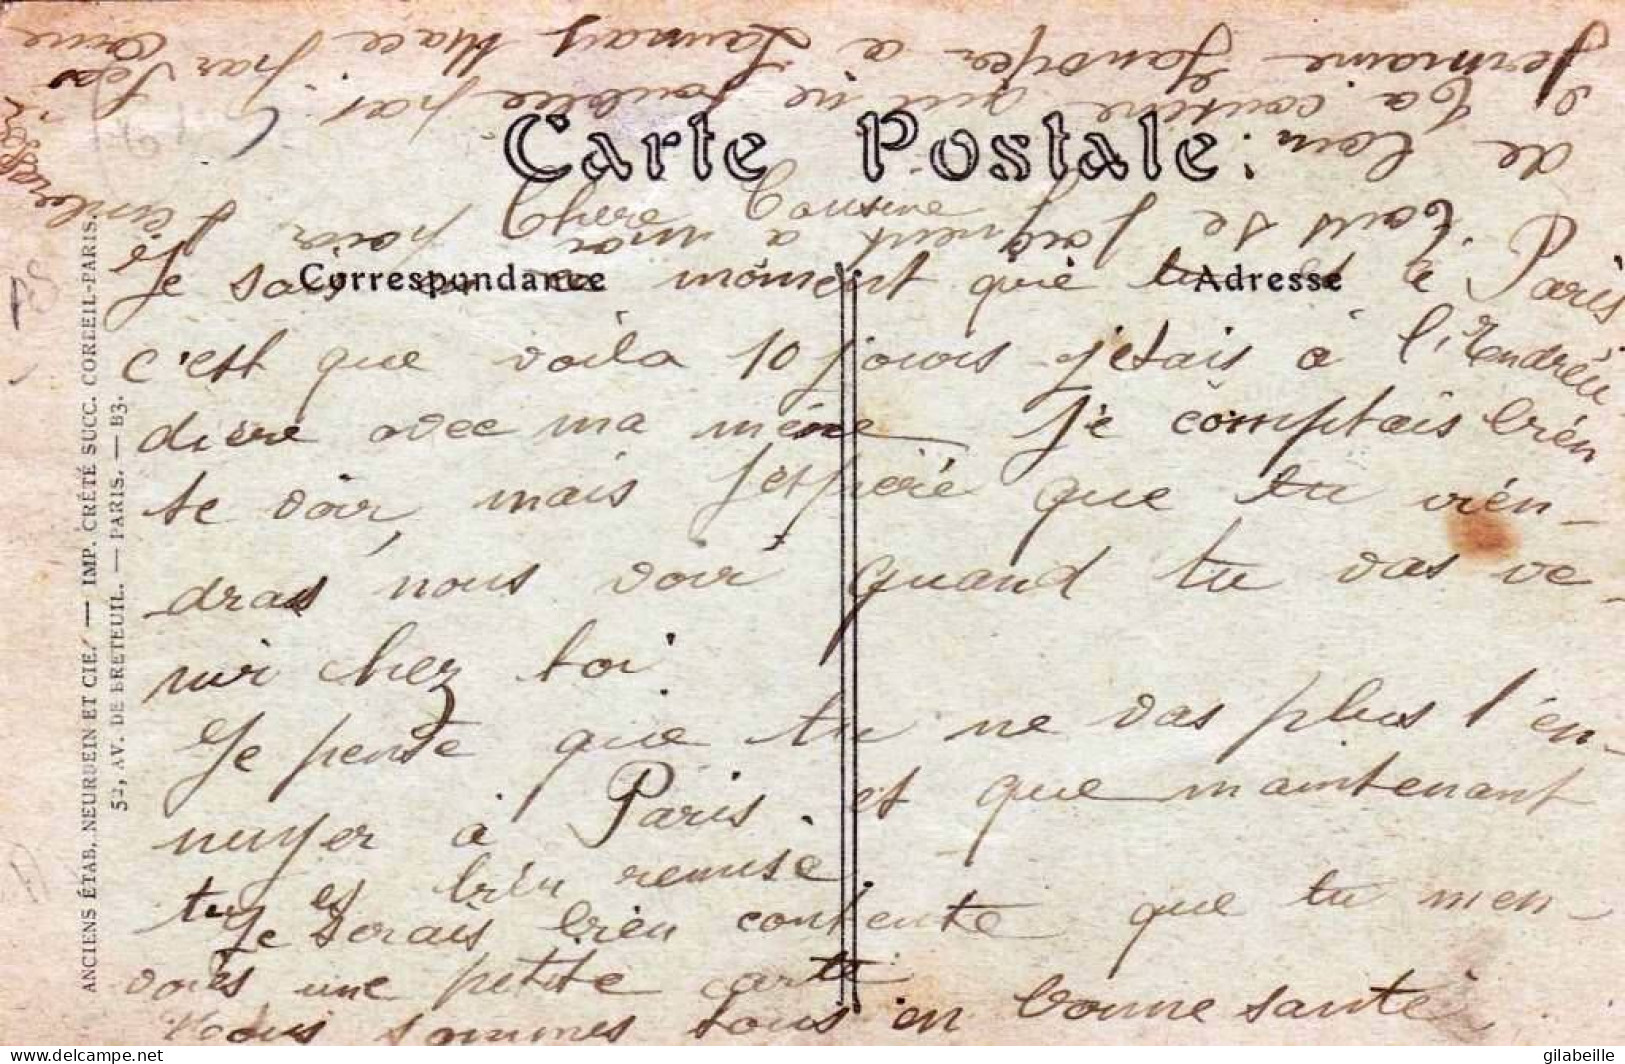 Carte Postale
Correspondance
Adresse
Chère Cousine
Je sais en ce moment que tu es à Paris
c'est que voila 10 jours j'etais à l'Endreu
diere avec ma mère Je comptais bien
te voir, mais j'espère que tu vien-
dras nous voir quand tu vas ve-
nir chez toi
Je pense que tu ne vas plus t'en-
nuyer à Paris. et que maintenant
tu es bien remise
Je serais bien contente que tu men-
voies une petite carte
Nous sommes tous en bonne santé.
Tous se joignent a moi pour
t'embrasser
de loin
Ta cousine qui ne t'oublie pas
Germaine à Launay Place par
ANCIENS ÉTAB. NEURDEIN ET CIE. — IMP. CRÉTÉ SUCC. CORBEIL-PARIS.
52, AV. DE BRETEUIL. — PARIS. — B3.
delcampe.net
gilabeille